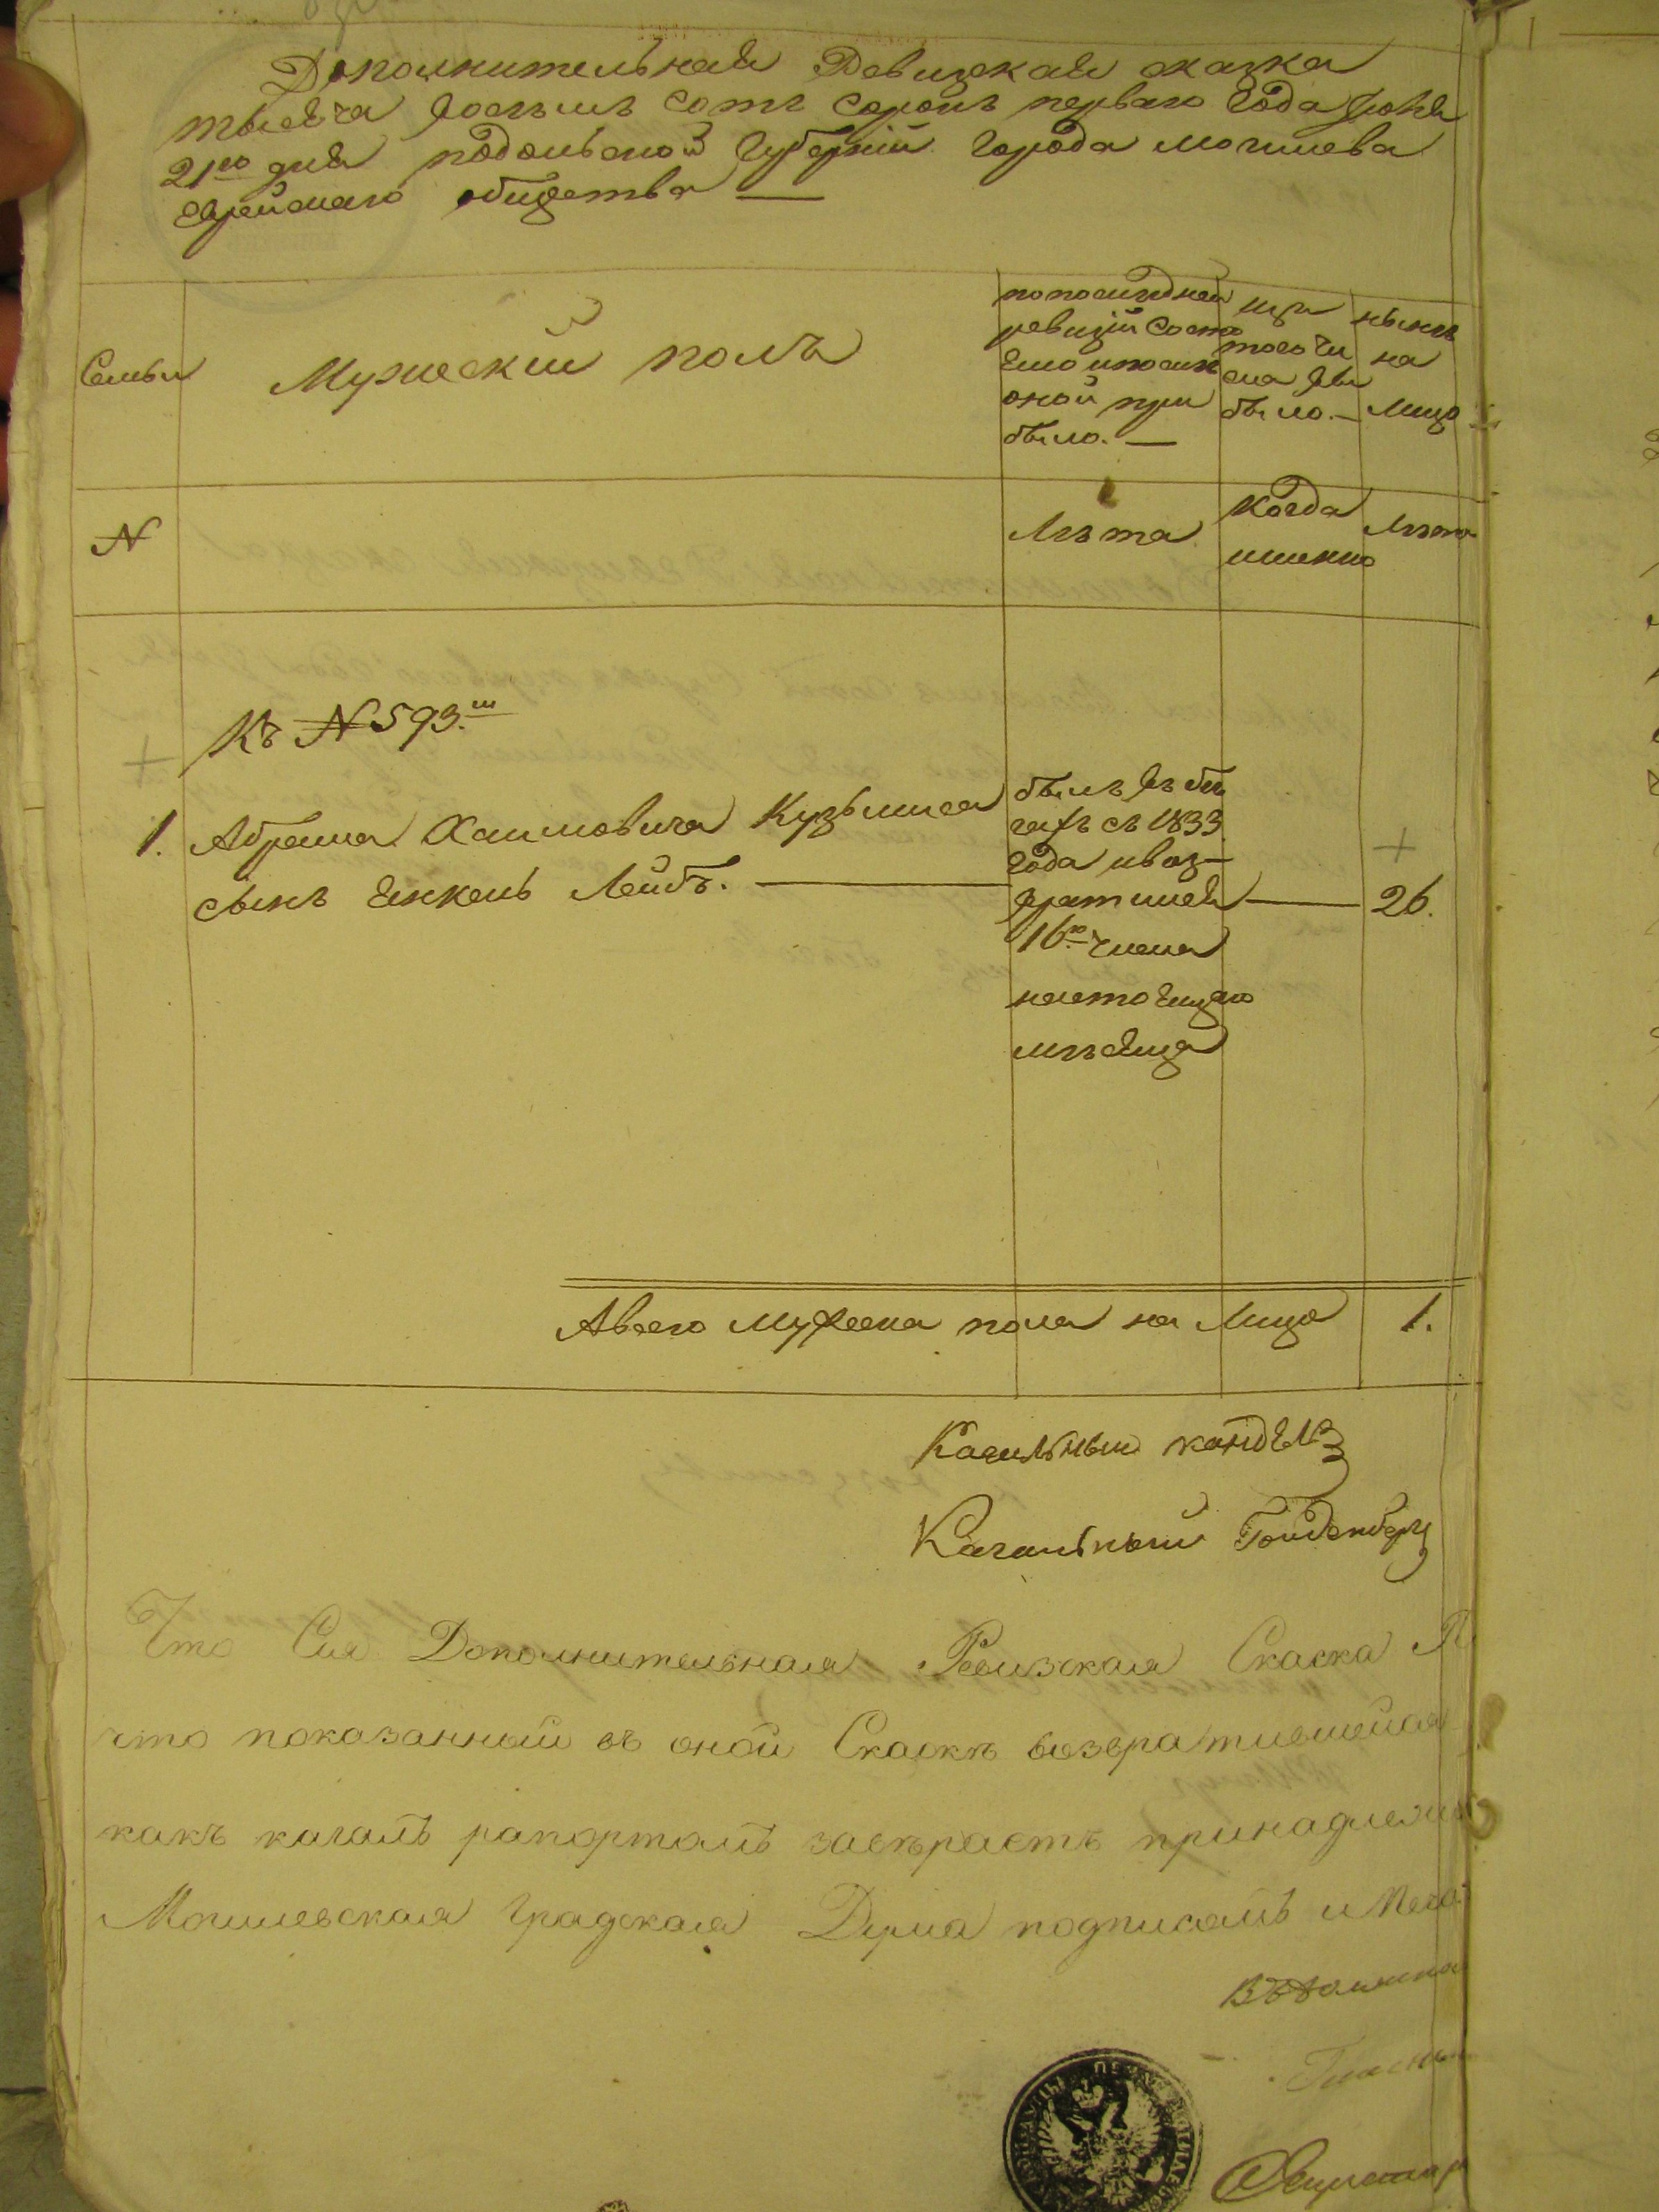 Дополнительная Ревизская сказка
тысяча восемь сотъ сорокъ перваго Года Іюня
21го дня подольской Губерніи Города могилева
Еврейскаго общества —
Семьи
Мужескій полъ
по последней
ревизіи состо
яло и после
оной при
было. —
изъ
того чи
сла вы
было. —
нынѣ
на
лицо
N
Лѣта
Когда
именно
Лѣта
Къ N 593.му
1. Абрама Хаимовича Кузьмиса
сынъ Янкель Лейбъ. —
былъ въ бѣ
гахъ съ 1833
Года и воз-
вратился
16го числа
настоящаго
мѣсяца
26.
А всего мужеска пола на лицо 1.
Кагальный
Кагальный Гольденберг
Что Сія Дополнительная Ревизская Скаска
что показанный въ оной Скаскѣ возвратившейся
какъ кагалъ рапортомъ завѣряетъ принадлежи
Могилевская Градская Дума подписомъ и Печа
Гласный